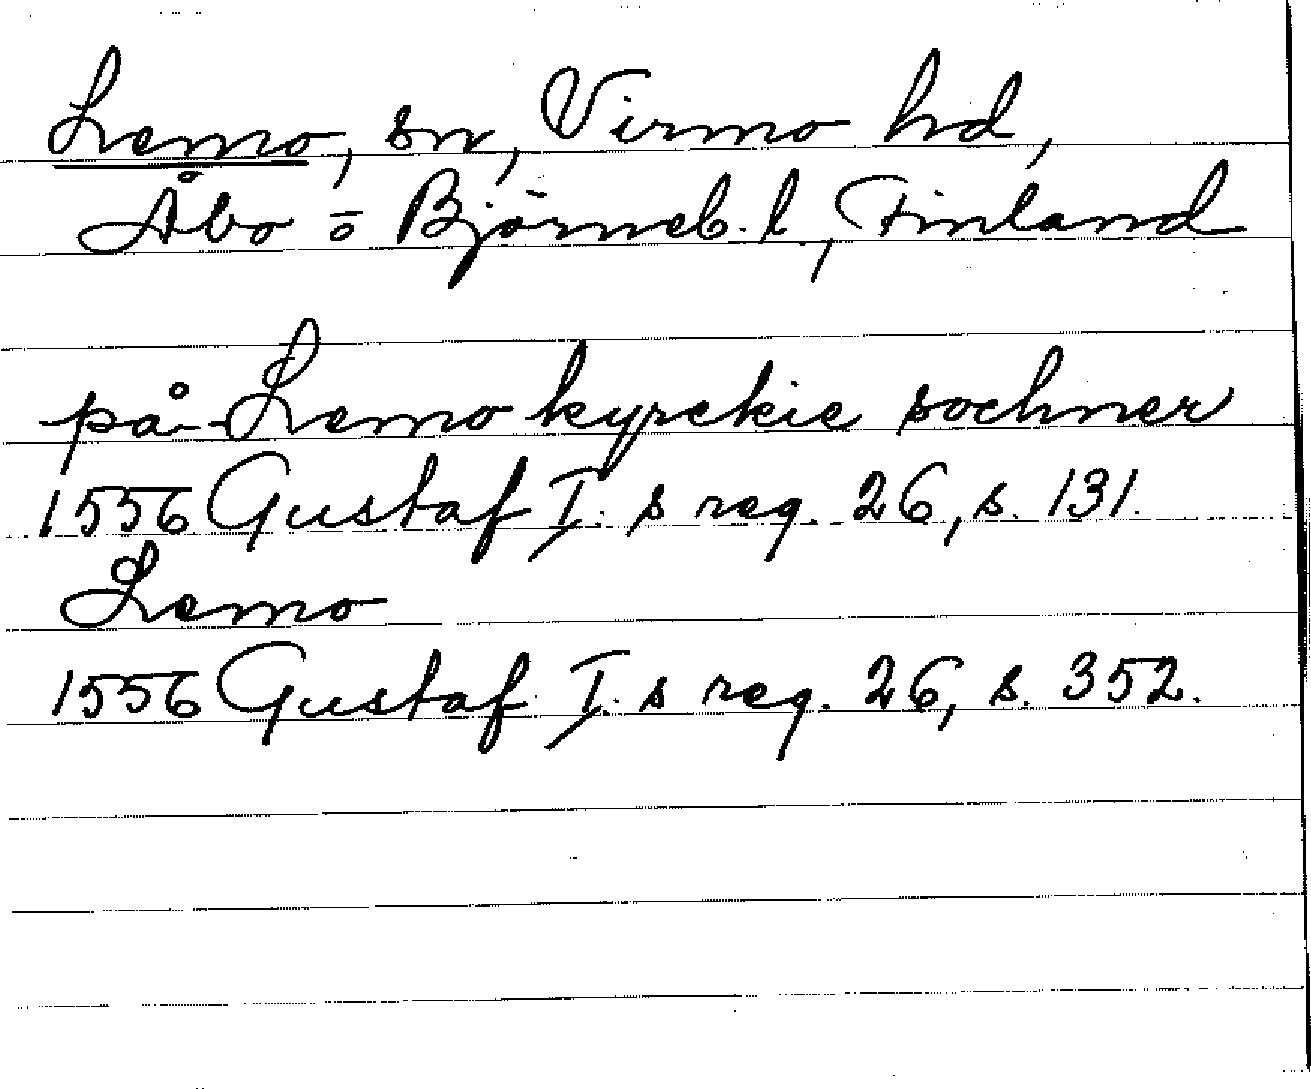 Lemo, sn, Virmo hd,
Åbo o Björneb. l, Finland
på Lemo kyrckie sochner
1556 Gustaf I. s reg. 26, s. 131.
Lemo
1556 Gustaf I. s reg. 26, s. 352.